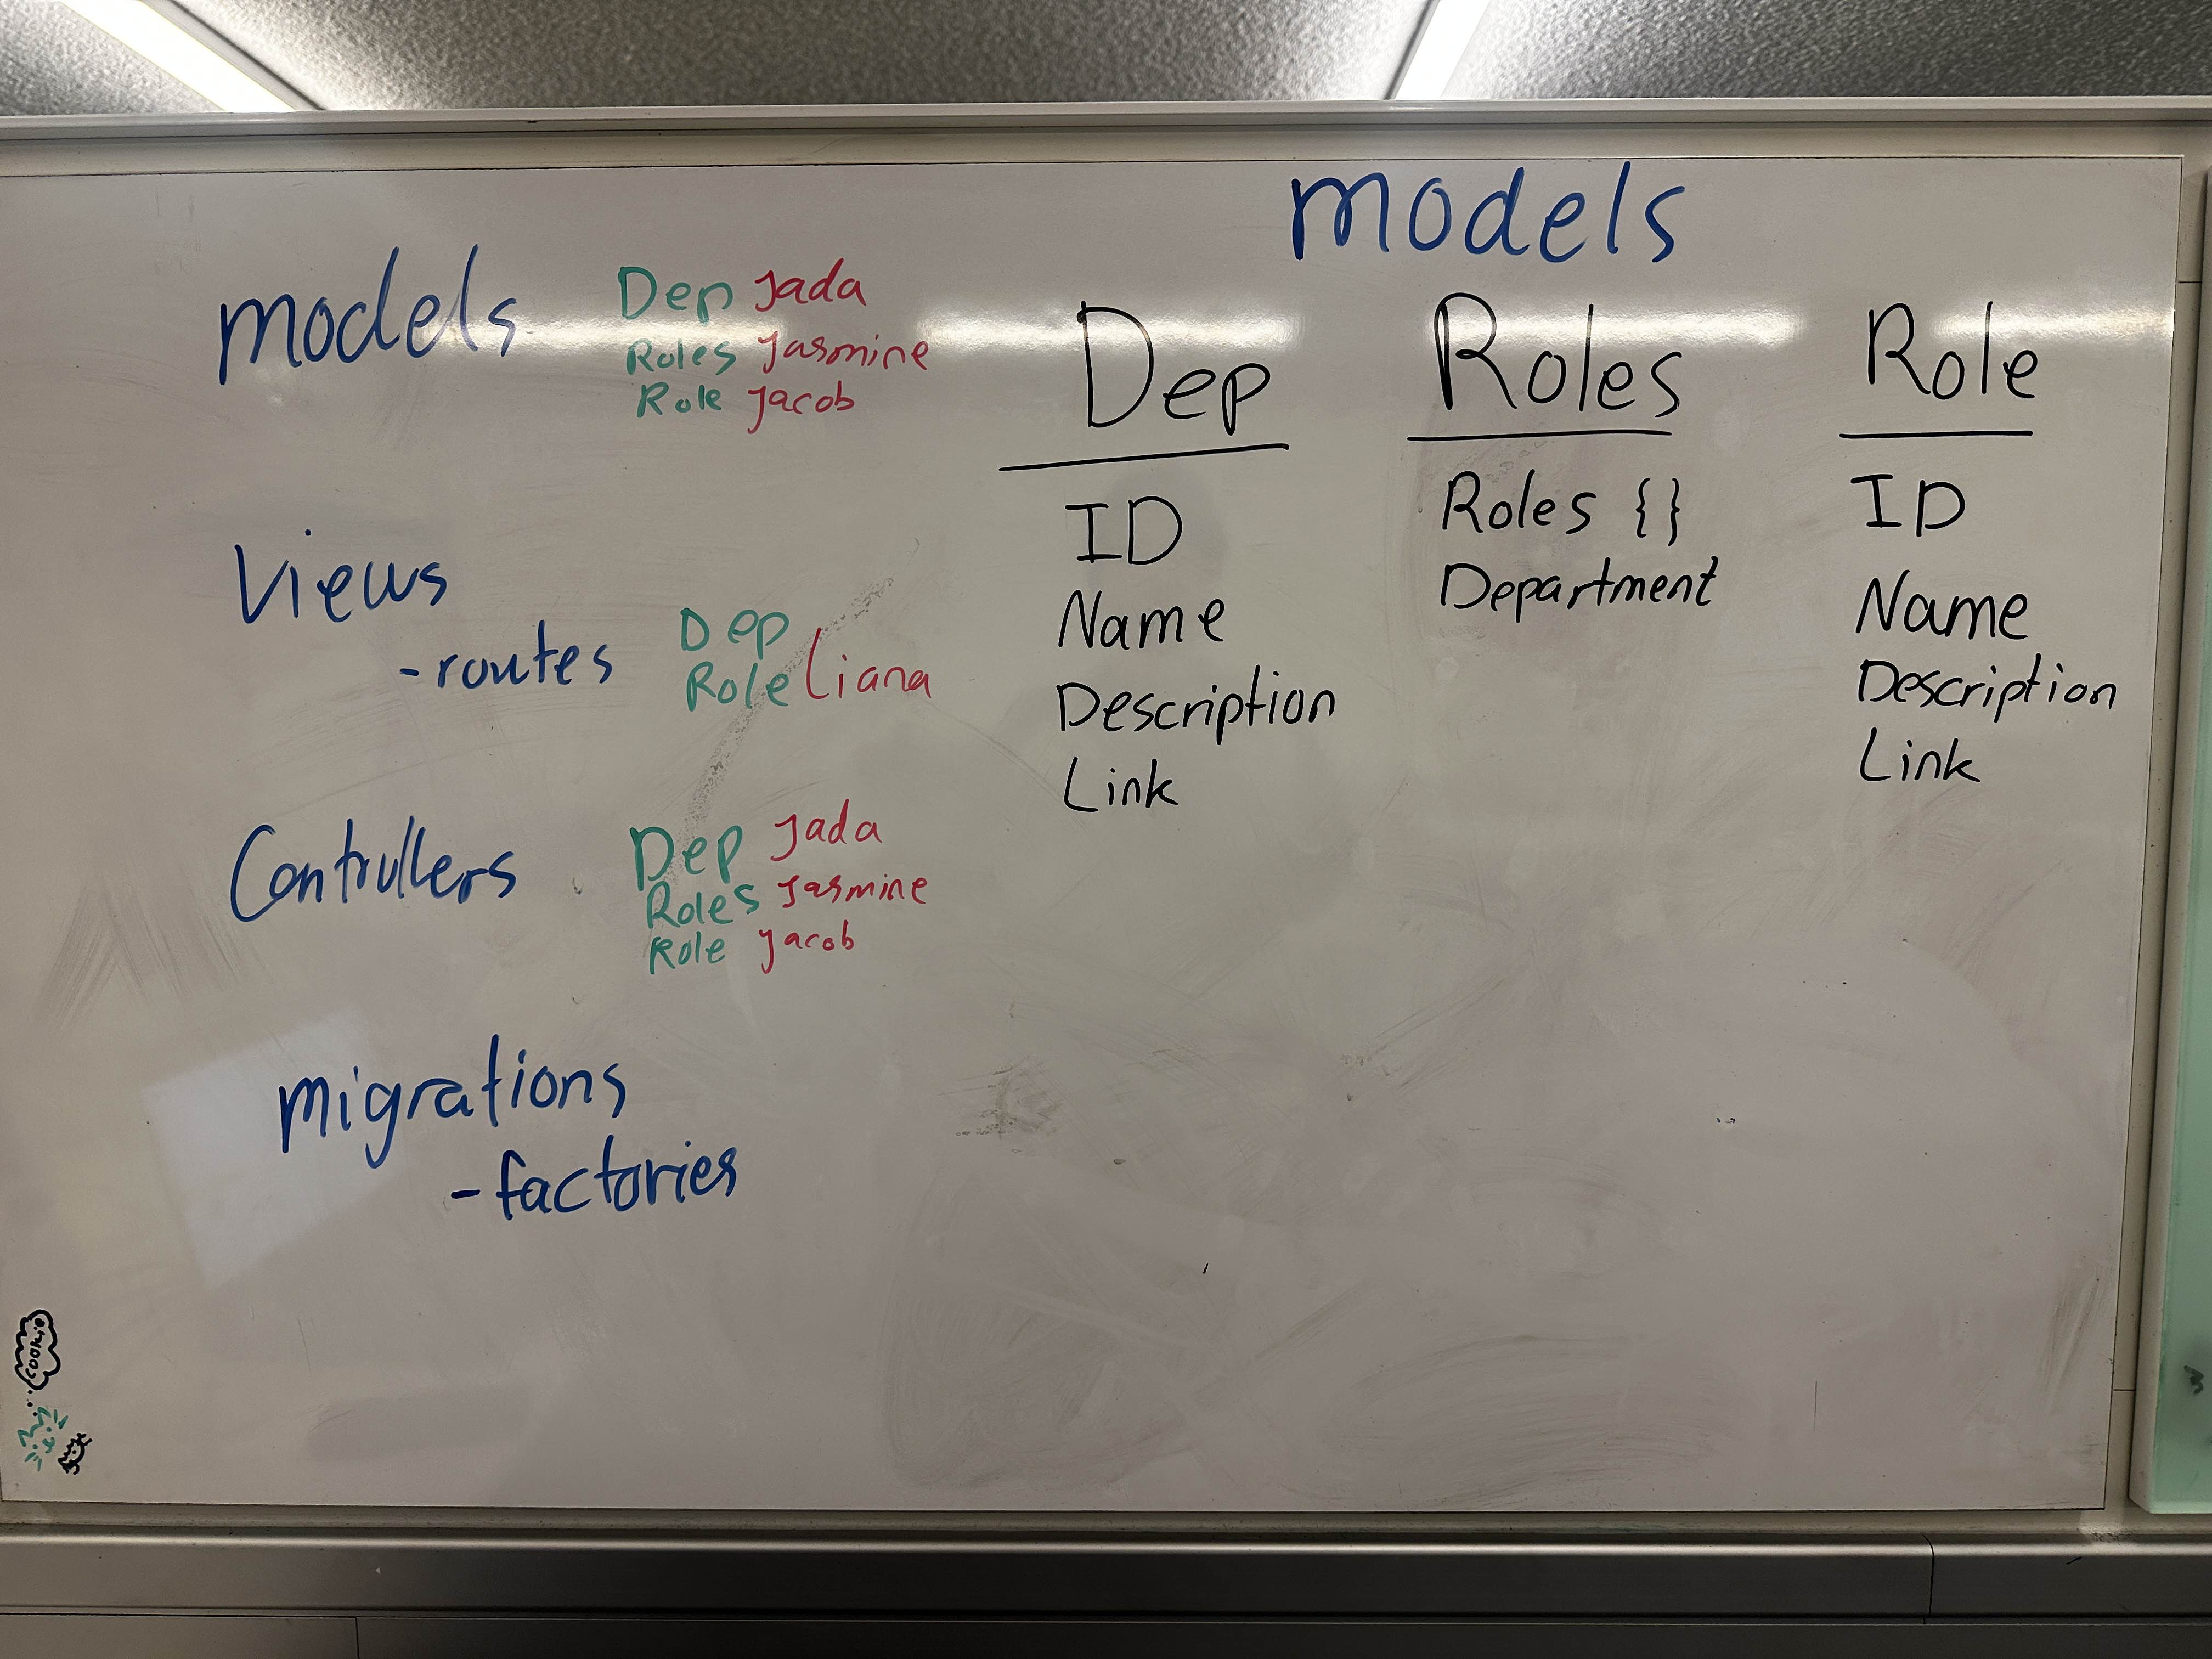 models
Dep Jada
Roles Jasmine
Role Jacob
Views
-routes
Dep
Role Liana
Controllers
Dep Jada
Roles Jasmine
Role Jacob
migrations
-factories
models
Dep
ID
Name
Description
Link
Roles
Roles {}
Department
Role
ID
Name
Description
Link